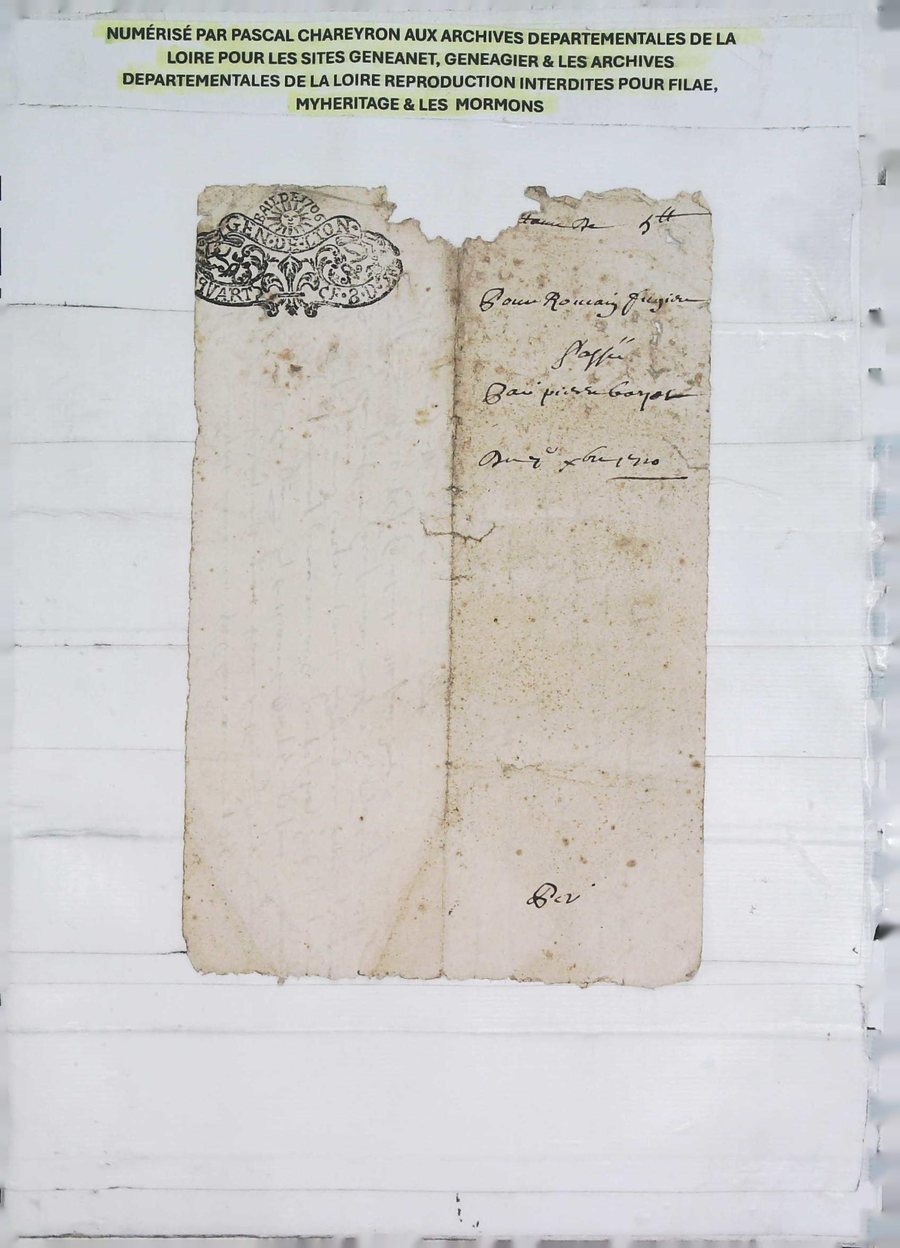 NUMÉRISÉ PAR PASCAL CHAREYRON AUX ARCHIVES DEPARTEMENTALES DE LA
LOIRE POUR LES SITES GENEANET, GENEAGIER & LES ARCHIVES
DEPARTEMENTALES DE LA LOIRE REPRODUCTION INTERDITES POUR FILAE,
MYHERITAGE & LES MORMONS
BAIL DE 1706
GEN·DE·LION
QUART
8·D
de 5tt
Pour Romain
Passée
Par pierre
Du xbre 1710